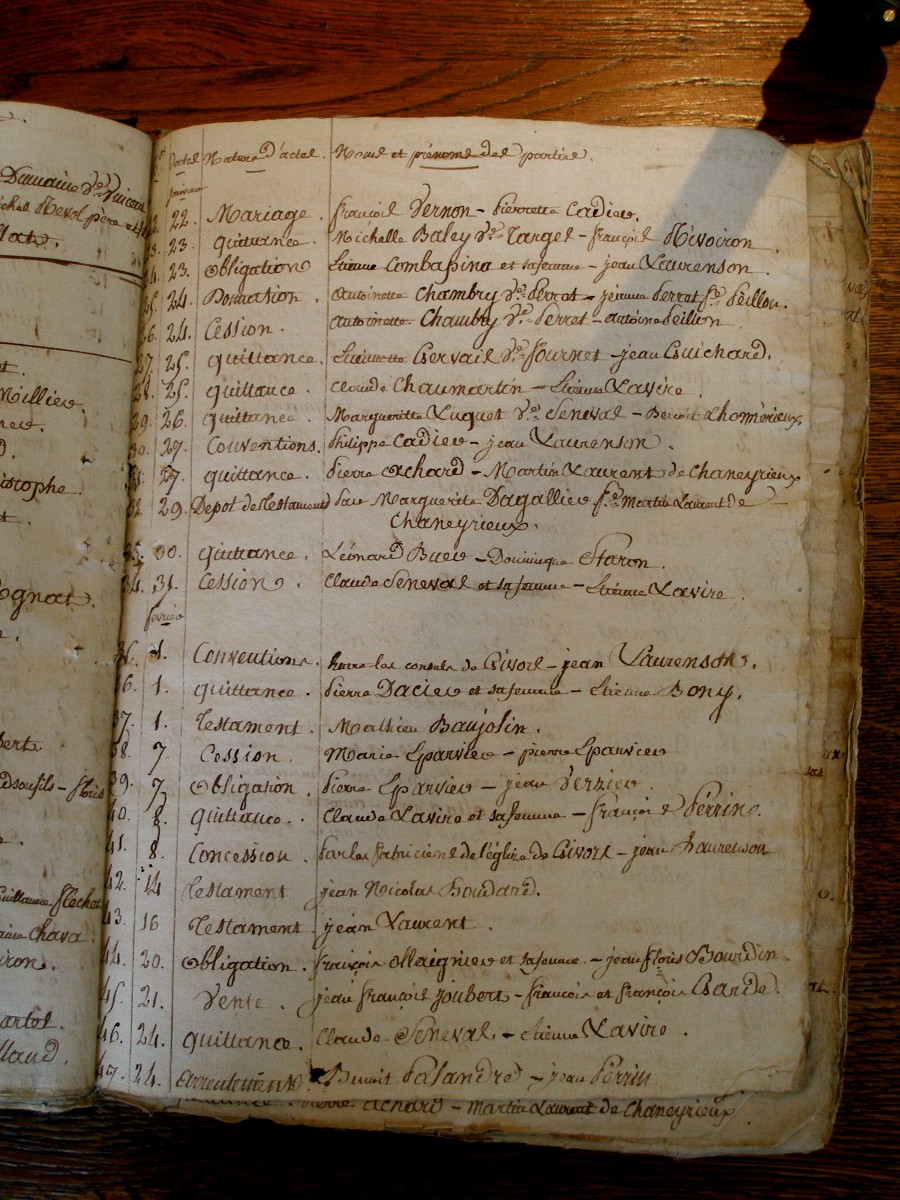 Domaine Ve Vincent
Nos Dates Nature d'actes. Noms et prénoms des parties.
Janvier
22. 22. Mariage. françois Vernon - Pierrette Cadier.
23. 23. quittance. Michelle Baley Ve Targes - françois Névoiron
24. 23. Obligation Etienne Combassina et sa femme - jean Laurenson.
25. 24. Donnation. Antoinette Chambry Ve Perret - jeanne Perret fe Peillon.
26. 24. Cession. Antoinette Chambry Ve Perret - antoine Peillon
27. 25. quittance. Etiennette Gervais Ve fournet - jean Guichard.
28. 25. quittance. Claude Chaumartin - Etienne Lavire
29. 26. quittance. Margueritte Luquet Ve Seneval - Benoit Thomérieux
30. 27. Conventions. Philippe Cadier - jean Laurenson.
31. 27. quittance. Pierre Achard - Martin Laurent de Chaneyrieux
32. 29. Depot de Testament Par Marguerite Dagallier fe Martin Laurent de
Chaneyrieux.
33. 30. quittance. Léonard Buer - Dominique Staron.
34. 31. Cession. Claude Seneval et sa femme - Etienne Lavire.
fevrier
35. 1. Conventions. Entre les consuls de Givors - jean Laurenson.
36. 1. quittance. Pierre Dacier et sa femme - Etienne Bony.
37. 1. Testament. Mathieu Baujolin.
38. 7. Cession. Marie Eparvier - pierre Eparvier
39. 7. Obligation. Pierre Eparvier - jean Verzier.
40. 8. quittance. Claude Lavire et sa femme - françois Perrin.
41. 8. Concession. Par les fabriciens de l'église de Givors - jean Laurenson
42. 14 Testament jean Nicolas Boudard.
43. 16 Testament jean Laurent.
44. 20. Obligation. françois Maignier et sa femme - jean floris Bourdin
45. 21. Vente. jean françois joubert - françois et françois Barde.
46. 24. quittance. Claude Seneval - Etienne Lavire.
47. 24. Arrentement Benoit Palandre - jean Perrin
Pierre Achard - Martin Laurent de Chaneyrieux